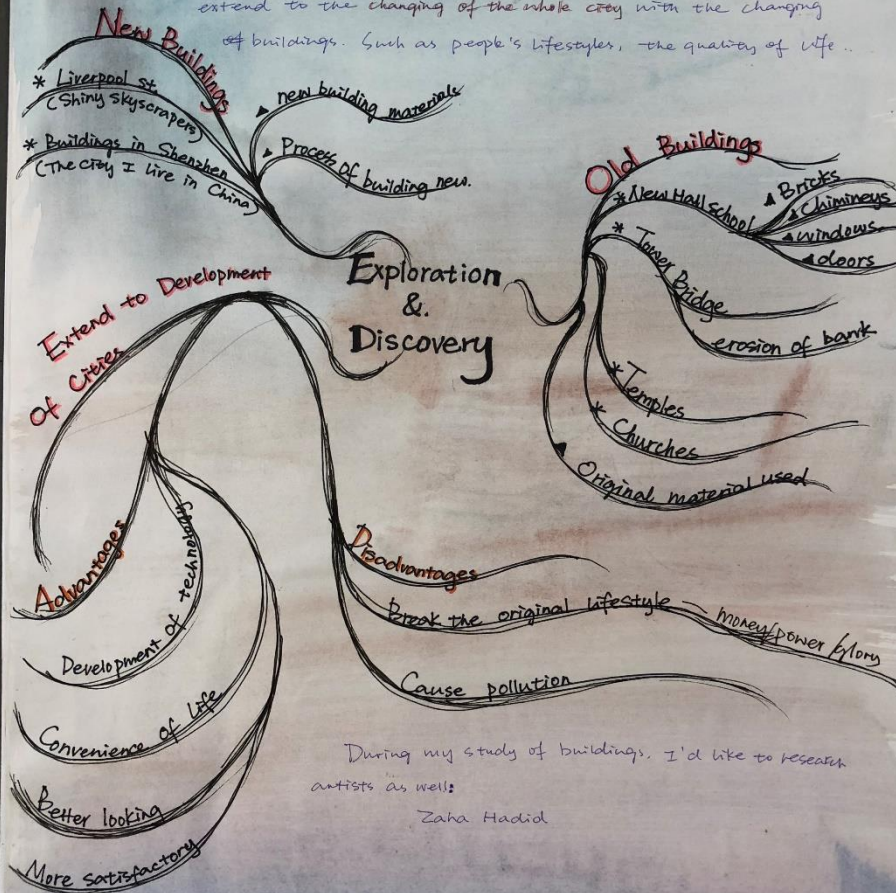 extend to the changing of the whole city with the changing
of buildings. Such as people's lifestyles, the quality of life..
New Buildings
* Liverpool st.
(Shiny Skyscrapers)
* Buildings in Shenzhen
(The city I live in China)
new building materials
Process of building new.
Exploration
&.
Discovery
Old Buildings
* New Hall school
Bricks
Chimineys
windows
doors
* Tower Bridge
erosion of bank
* Temples
* Churches
Original material used
Extend to Development
Of Cities
Advantages
Development of technology
Convenience of Life
Better looking
More satisfactory
Disadvantages
Break the original lifestyle — money/power/glory
Cause pollution
During my study of buildings, I'd like to research
artists as well:
Zaha Hadid